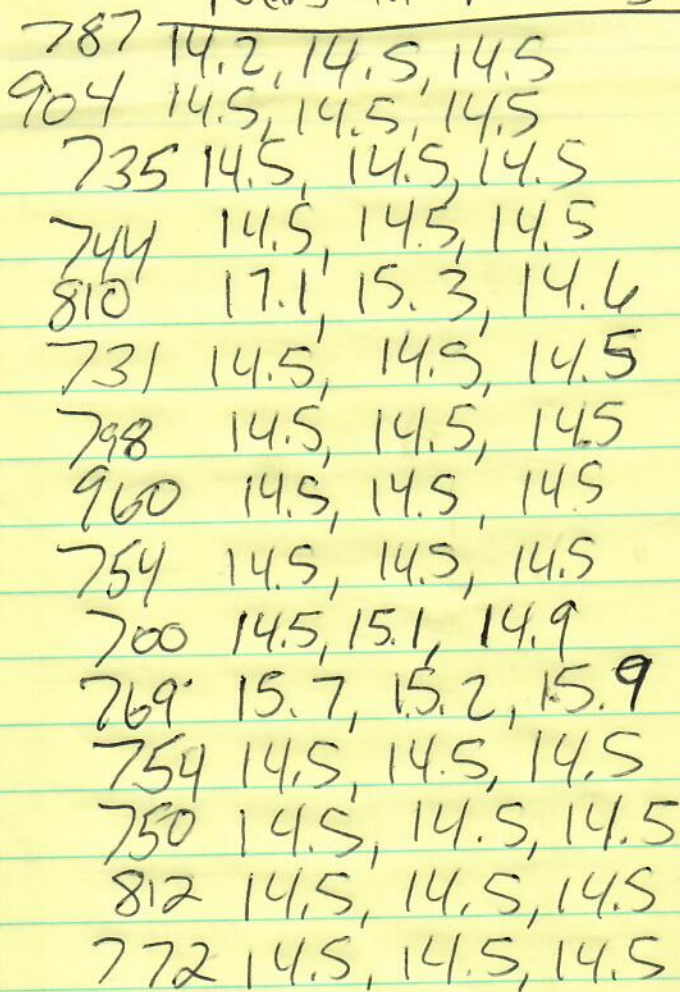 787 14.2, 14.5, 14.5
904 14.5, 14.5, 14.5
735 14.5, 14.5, 14.5
744 14.5, 14.5, 14.5
810 17.1, 15.3, 14.6
731 14.5, 14.5, 14.5
798 14.5, 14.5, 14.5
960 14.5, 14.5, 14.5
754 14.5, 14.5, 14.5
700 14.5, 15.1, 14.9
769 15.7, 15.2, 15.9
754 14.5, 14.5, 14.5
750 14.5, 14.5, 14.5
812 14.5, 14.5, 14.5
772 14.5, 14.5, 14.5